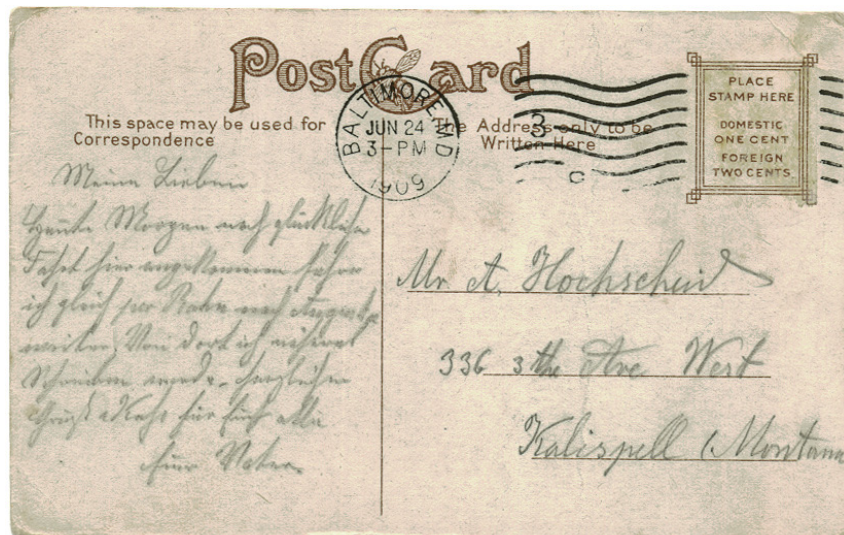 Post Card
This space may be used for
Correspondence
The Address only to be
Written Here
BALTIMORE, MD
JUN 24
3-PM
1909
3
C
PLACE
STAMP HERE
DOMESTIC
ONE CENT
FOREIGN
TWO CENTS
Meine Lieben
Heute Morgen nach glücklicher
Fahrt hier angekommen fahre
ich gleich per Bahn nach
weiter. Von dort ich näheres
Schreiben werde. herzlichen
Gruß & Kuß für Euch alle
Euer Vater
Mr A. Hochscheid
336 3 the Ave West
Kalispell Montana